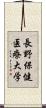 長野保健
医療大学